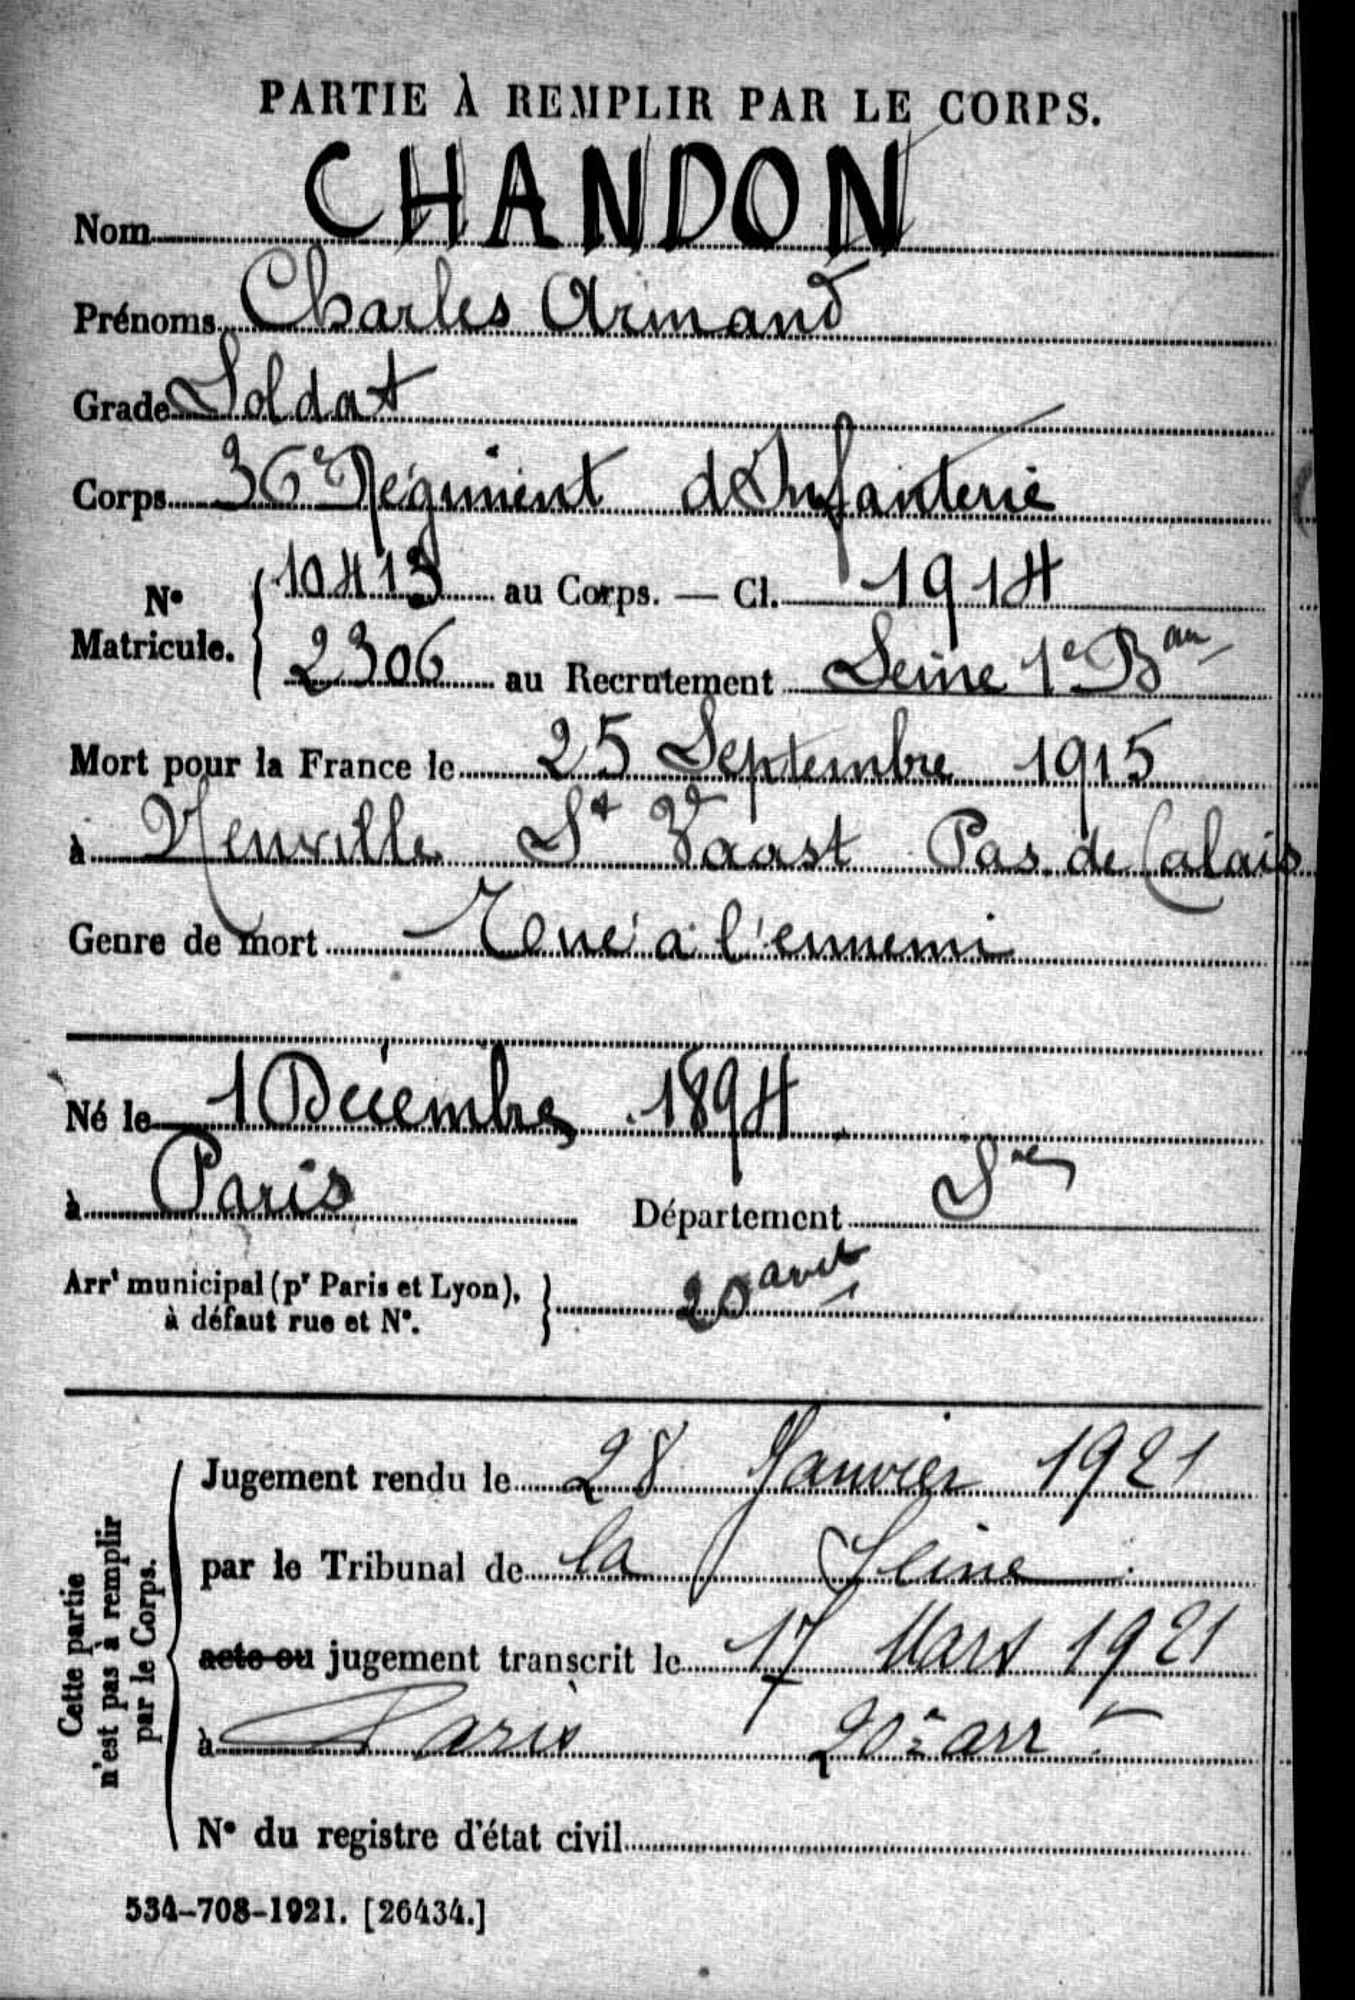 PARTIE À REMPLIR PAR LE CORPS.
Nom CHANDON
Prénoms Charles Armand
Grade Soldat
Corps 36e Régiment d'Infanterie
N° Matricule. { 10413 au Corps. — Cl. 1914
2306 au Recrutement Seine 1e Bau
Mort pour la France le 25 Septembre 1915
à Neuville St Vaast Pas de Calais
Genre de mort Tué à l'ennemi
Né le 1 Décembre 1894
à Paris Département Sne
Arrt municipal (pr Paris et Lyon), à défaut rue et N°. } 20 arrt
Cette partie n'est pas à remplir par le Corps.
Jugement rendu le 28 Janvier 1921
par le Tribunal de la Seine
acte ou jugement transcrit le 17 Mars 1921
à Paris 20e arrt
N° du registre d'état civil
534-708-1921. [26434.]